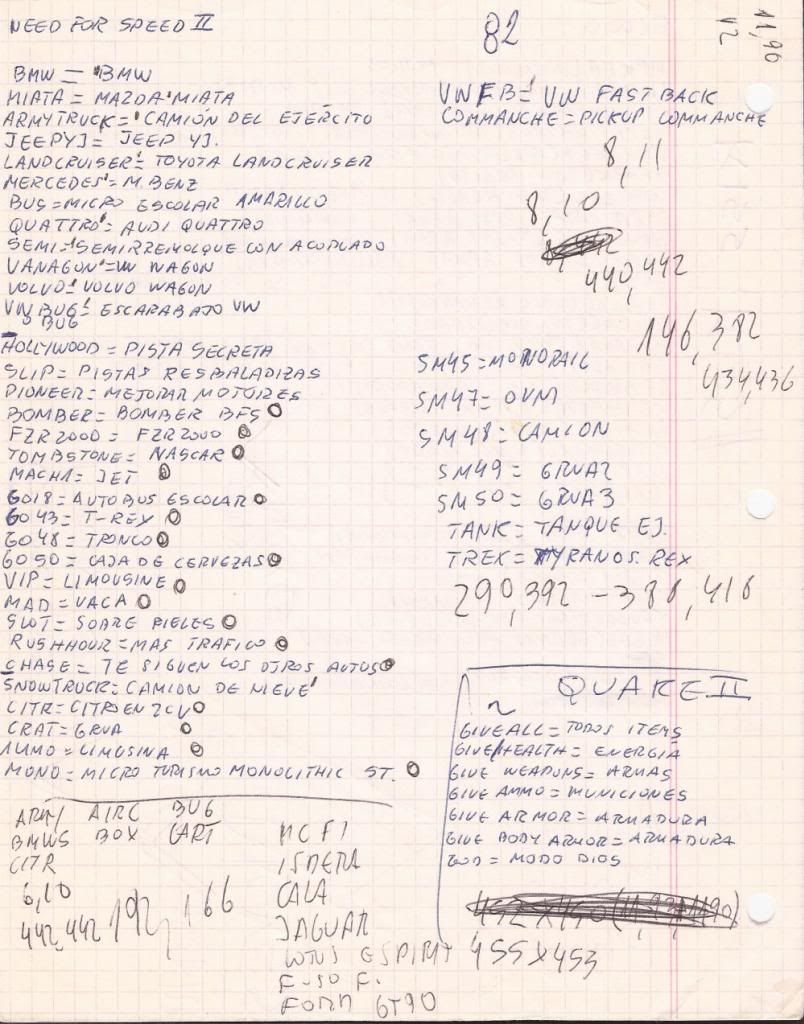 NEED FOR SPEED II
82
11,90
V2
BMW = BMW
MIATA = MAZDA MIATA
ARMYTRUCK = CAMIÓN DEL EJÉRCITO
JEEPYJ = JEEP YJ.
LANDCRUISER = TOYOTA LANDCRUISER
MERCEDES = M. BENZ
BUS = MICRO ESCOLAR AMARILLO
QUATTRO = AUDI QUATTRO
SEMI = SEMIRREMOLQUE CON ACOPLADO
VANAGON = VW WAGON
VOLVO = VOLVO WAGON
VWBUG = ESCARABAJO VW
O BUG
HOLLYWOOD = PISTA SECRETA
SLIP = PISTAS RESBALADIZAS
PIONEER = MEJORAR MOTORES
BOMBER = BOMBER BFS
FZR2000 = FZR2000
TOMBSTONE = NASCAR
MACH1 = JET
GO18 = AUTOBUS ESCOLAR
GO43 = T-REX
GO48 = TRONCO
GO50 = CAJA DE CERVEZAS
VIP = LIMOUSINE
MAD = VACA
SLOT = SOBRE RIELES
RUSHHOUR = MAS TRAFICO
CHASE = TE SIGUEN LOS OTROS AUTOS
SNOWTRUCK = CAMION DE NIEVE
CITR = CITROEN 2CV
CRAT = GRUA
LIMO = LIMUSINA
MONO = MICRO TURISMO MONOLITHIC ST.
VWFB = VW FASTBACK
COMMANCHE = PICKUP COMMANCHE
8,11
8,10
440,442
146,382
434,436
SM45 = MONORAIL
SM47 = OVNI
SM48 = CAMION
SM49 = GRUA2
SM50 = GRUA3
TANK = TANQUE EJ.
TREX = TYRANOS. REX
290,392 - 386,416
QUAKE II
GIVE ALL = TODOS ITEMS
GIVE HEALTH = ENERGIA
GIVE WEAPONS = ARMAS
GIVE AMMO = MUNICIONES
GIVE ARMOR = ARMADURA
GIVE BODY ARMOR = ARMADURA
GOD = MODO DIOS
455X453
ARMY AIRC BUG
BMWS BOX CART
CITR
6,10
442,442 192, 166
MCF1
ISDERA
CALA
JAGUAR
LOTUS ESPIRIT
F-50 F.
FORD GT90